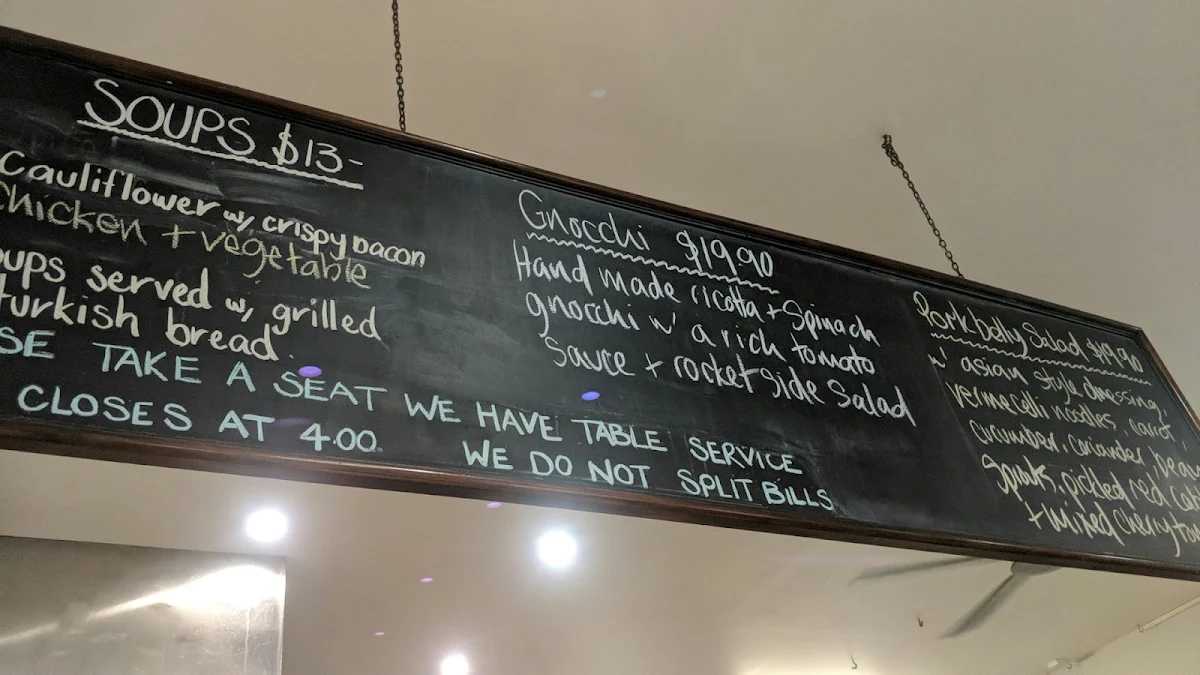 SOUPS $13-
Cauliflower w/ crispy bacon
Chicken + vegetable
oups served w/ grilled
turkish bread.
SE TAKE A SEAT WE HAVE TABLE SERVICE
CLOSES AT 4.00. WE DO NOT SPLIT BILLS
Gnocchi $19.90
Hand made ricotta + Spinach
gnocchi w' a rich tomato
Sauce + rocket side Salad
Pork belly Salad $19.90
w' asian style dressing,
vermecelli noodles, carrot,
cucumber, coriander, bean
Spouts, pickled red cab
+ Mixed cherry tom